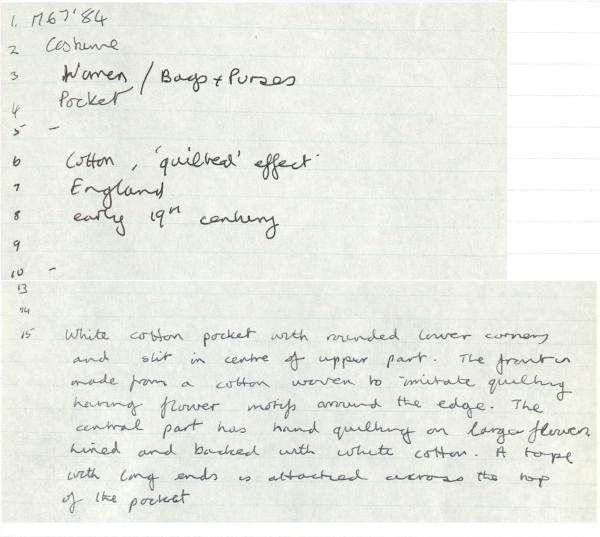 1. M67'84
2 Costume
3 Women / Bags + Purses
4 Pocket
5 -
6 Cotton, 'quilted' effect
7 England
8 early 19th century
9
10 -
13
14
15 White cotton pocket with rounded lower corners
and slit in centre of upper part. The front is
made from a cotton woven to imitate quilting
having flower motifs around the edge. The
central part has hand quilting on larger flowers.
Lined and backed with white cotton. A tape
with long ends is attached across the top
of the pocket